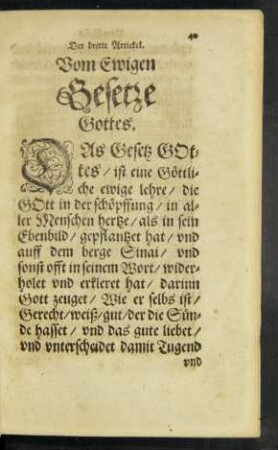 40
Der dritte Artickel.
Vom Ewigen
Gesetze
Gottes.
DAs Gesetz GOt-
tes / ist eine Göttli-
che ewige lehre / die
GOtt in der schöpffung / in al-
ler Menschen hertze / als in sein
Ebenbild / gepflantzet hat / vnd
auff dem berge Sinai / vnd
sonst offt in seinem Wort / wider-
holet vnd erkleret hat / darinn
Gott zeuget / Wie er selbs ist /
Gerecht / weiß / gut / der die Sün-
de hasset / vnd das gute liebet /
vnd vnterscheidet damit Tugend
vnd